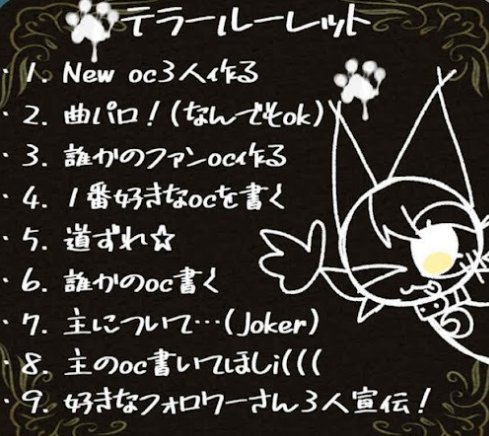 テラールーレット
・1. New oc3人作る
・2. 曲パロ!(なんでもok)
・3. 誰かのファンoc作る
・4. 1番好きなocを書く
・5. 道ずれ☆
・6. 誰かのoc書く
・7. 主について…(Joker)
・8. 主のoc書いてほしi(((
・9. 好きなフォロワーさん3人宣伝!